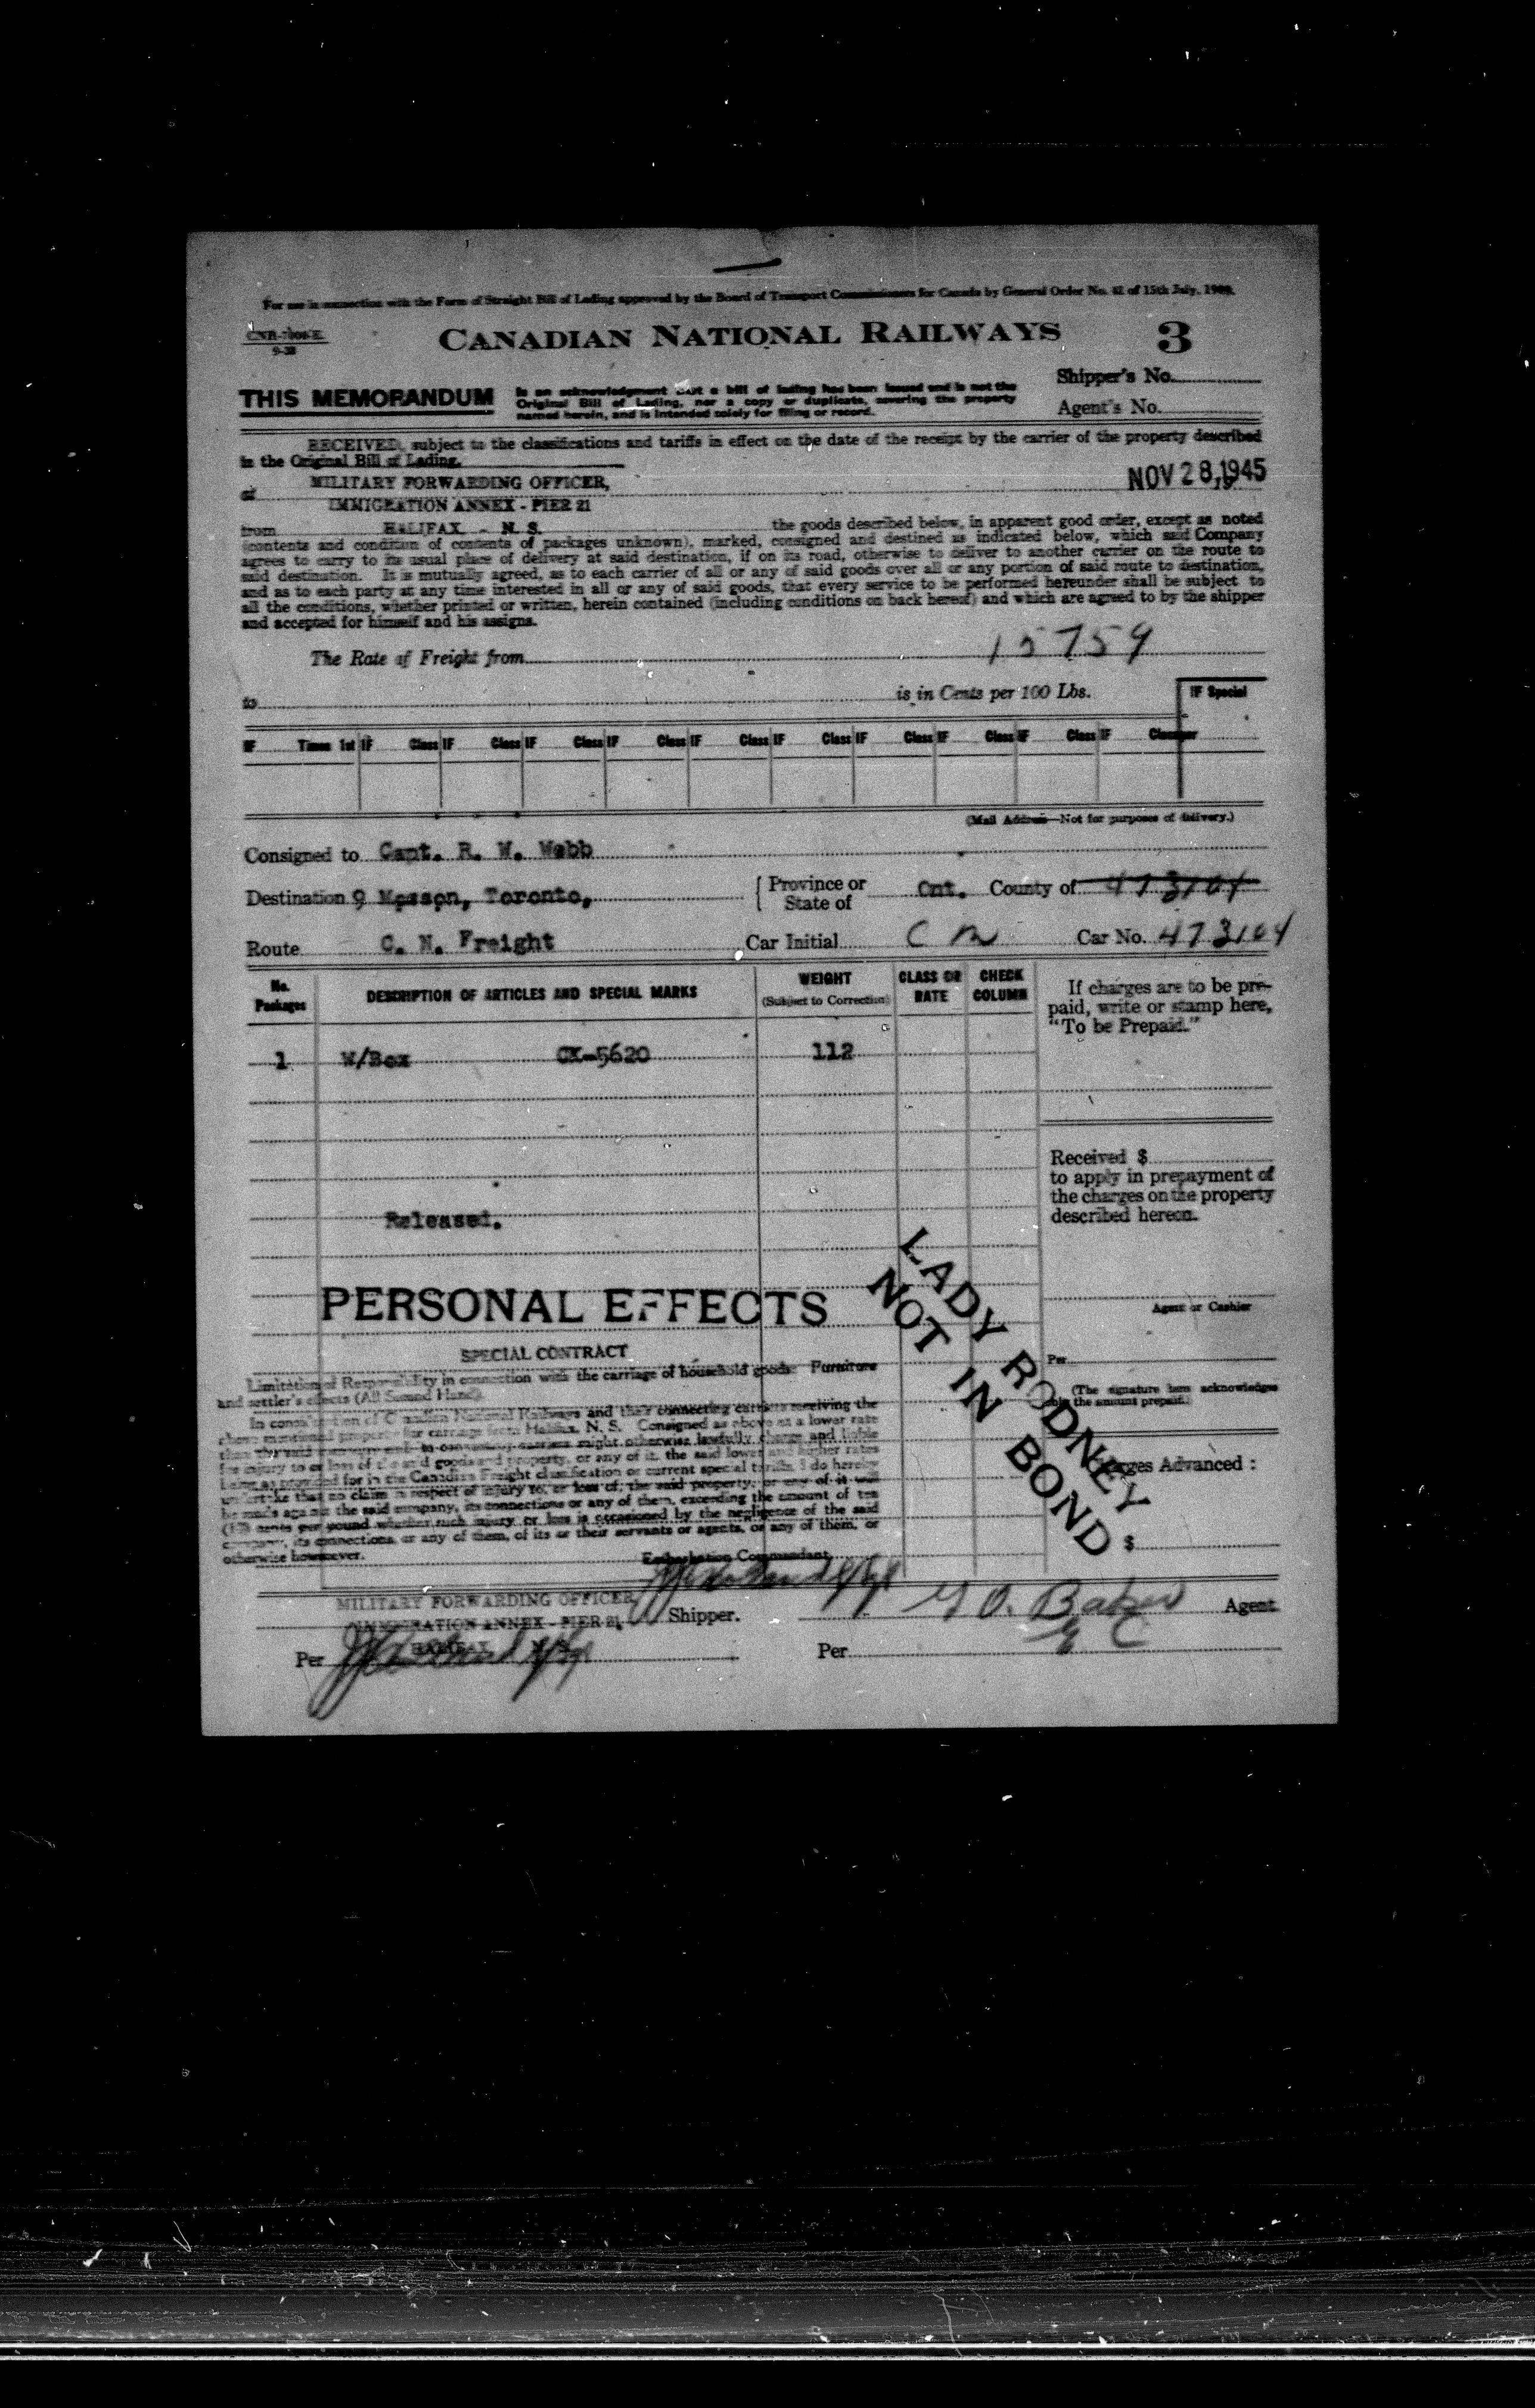 For use in connection with the Form of Straight Bill of Lading approved by the Board of Transport Commissioners for Canada by General Order No. 41 of 15th July, 1909.
CANADIAN NATIONAL RAILWAYS 3
9-38
Shipper's No.
THIS MEMORANDUM
is an acknowledgment that a bill of lading has been issued and is not the
Original Bill of Lading, nor a copy or duplicate, covering the property
named herein, and is intended solely for filing or record.
Agent's No.
RECEIVED, subject to the classifications and tariffs in effect on the date of the receipt by the carrier of the property described
in the Original Bill of Lading.
NOV 28, 1945
at MILITARY FORWARDING OFFICER,
IMMIGRATION ANNEX - PIER 21
from HALIFAX - N. S. the goods described below, in apparent good order, except as noted
(contents and condition of contents of packages unknown), marked, consigned and destined as indicated below, which said Company
agrees to carry to its usual place of delivery at said destination, if on its road, otherwise to deliver to another carrier on the route to
said destination. It is mutually agreed, as to each carrier of all or any of said goods over all or any portion of said route to destination,
and as to each party at any time interested in all or any of said goods, that every service to be performed hereunder shall be subject to
all the conditions, whether printed or written, herein contained (including conditions on back hereof) and which are agreed to by the shipper
and accepted for himself and his assigns.
The Rate of Freight from 15759
to is in Cents per 100 Lbs.
IF Special
IF Times 1st IF Class IF Class IF Class IF Class IF Class IF Class IF Class IF Class IF Class
per
(Mail Address—Not for purposes of delivery.)
Consigned to Capt. R. W. Webb
Destination 9 Mosson, Toronto, Province or State of Ont. County of 473104
Route C. N. Freight Car Initial C N Car No. 473104
No. Packages DESCRIPTION OF ARTICLES AND SPECIAL MARKS WEIGHT (Subject to Correction) CLASS OR RATE CHECK COLUMN
If charges are to be pre-
paid, write or stamp here,
"To be Prepaid."
1 W/Box CX-5620 112
Received $
to apply in prepayment of
the charges on the property
described hereon.
Released.
LADY RODNEY
NOT IN BOND
PERSONAL EFFECTS
Agent or Cashier
SPECIAL CONTRACT
Per
Limitation of Responsibility in connection with the carriage of household goods Furniture
and settler's effects (All Second Hand).
(The signature here acknowledges
the amount prepaid.)
In consideration of Canadian National Railways and their connecting carriers receiving the
above mentioned property for carriage from Halifax, N. S. Consigned as above at a lower rate
than the said company and its connecting carriers might otherwise lawfully charge and liable
for injury to or loss of the said goods and property, or any of it, the said lower and higher rates
being as provided for in the Canadian Freight classification or current special tariffs, I do hereby
undertake that no claim in respect of injury to, or loss of, the said property, or any of it will
be made against the said company, its connections or any of them, exceeding the amount of ten
(10) cents per pound whether such injury or loss is occasioned by the negligence of the said
company, its connections or any of them, of its or their servants or agents, or any of them, or
otherwise howsoever.
Charges Advanced :
$
Embarkation Commandant
MILITARY FORWARDING OFFICER
IMMIGRATION ANNEX - PIER 21, Shipper. G O. Baker Agent
HALIFAX N. S.
Per Per